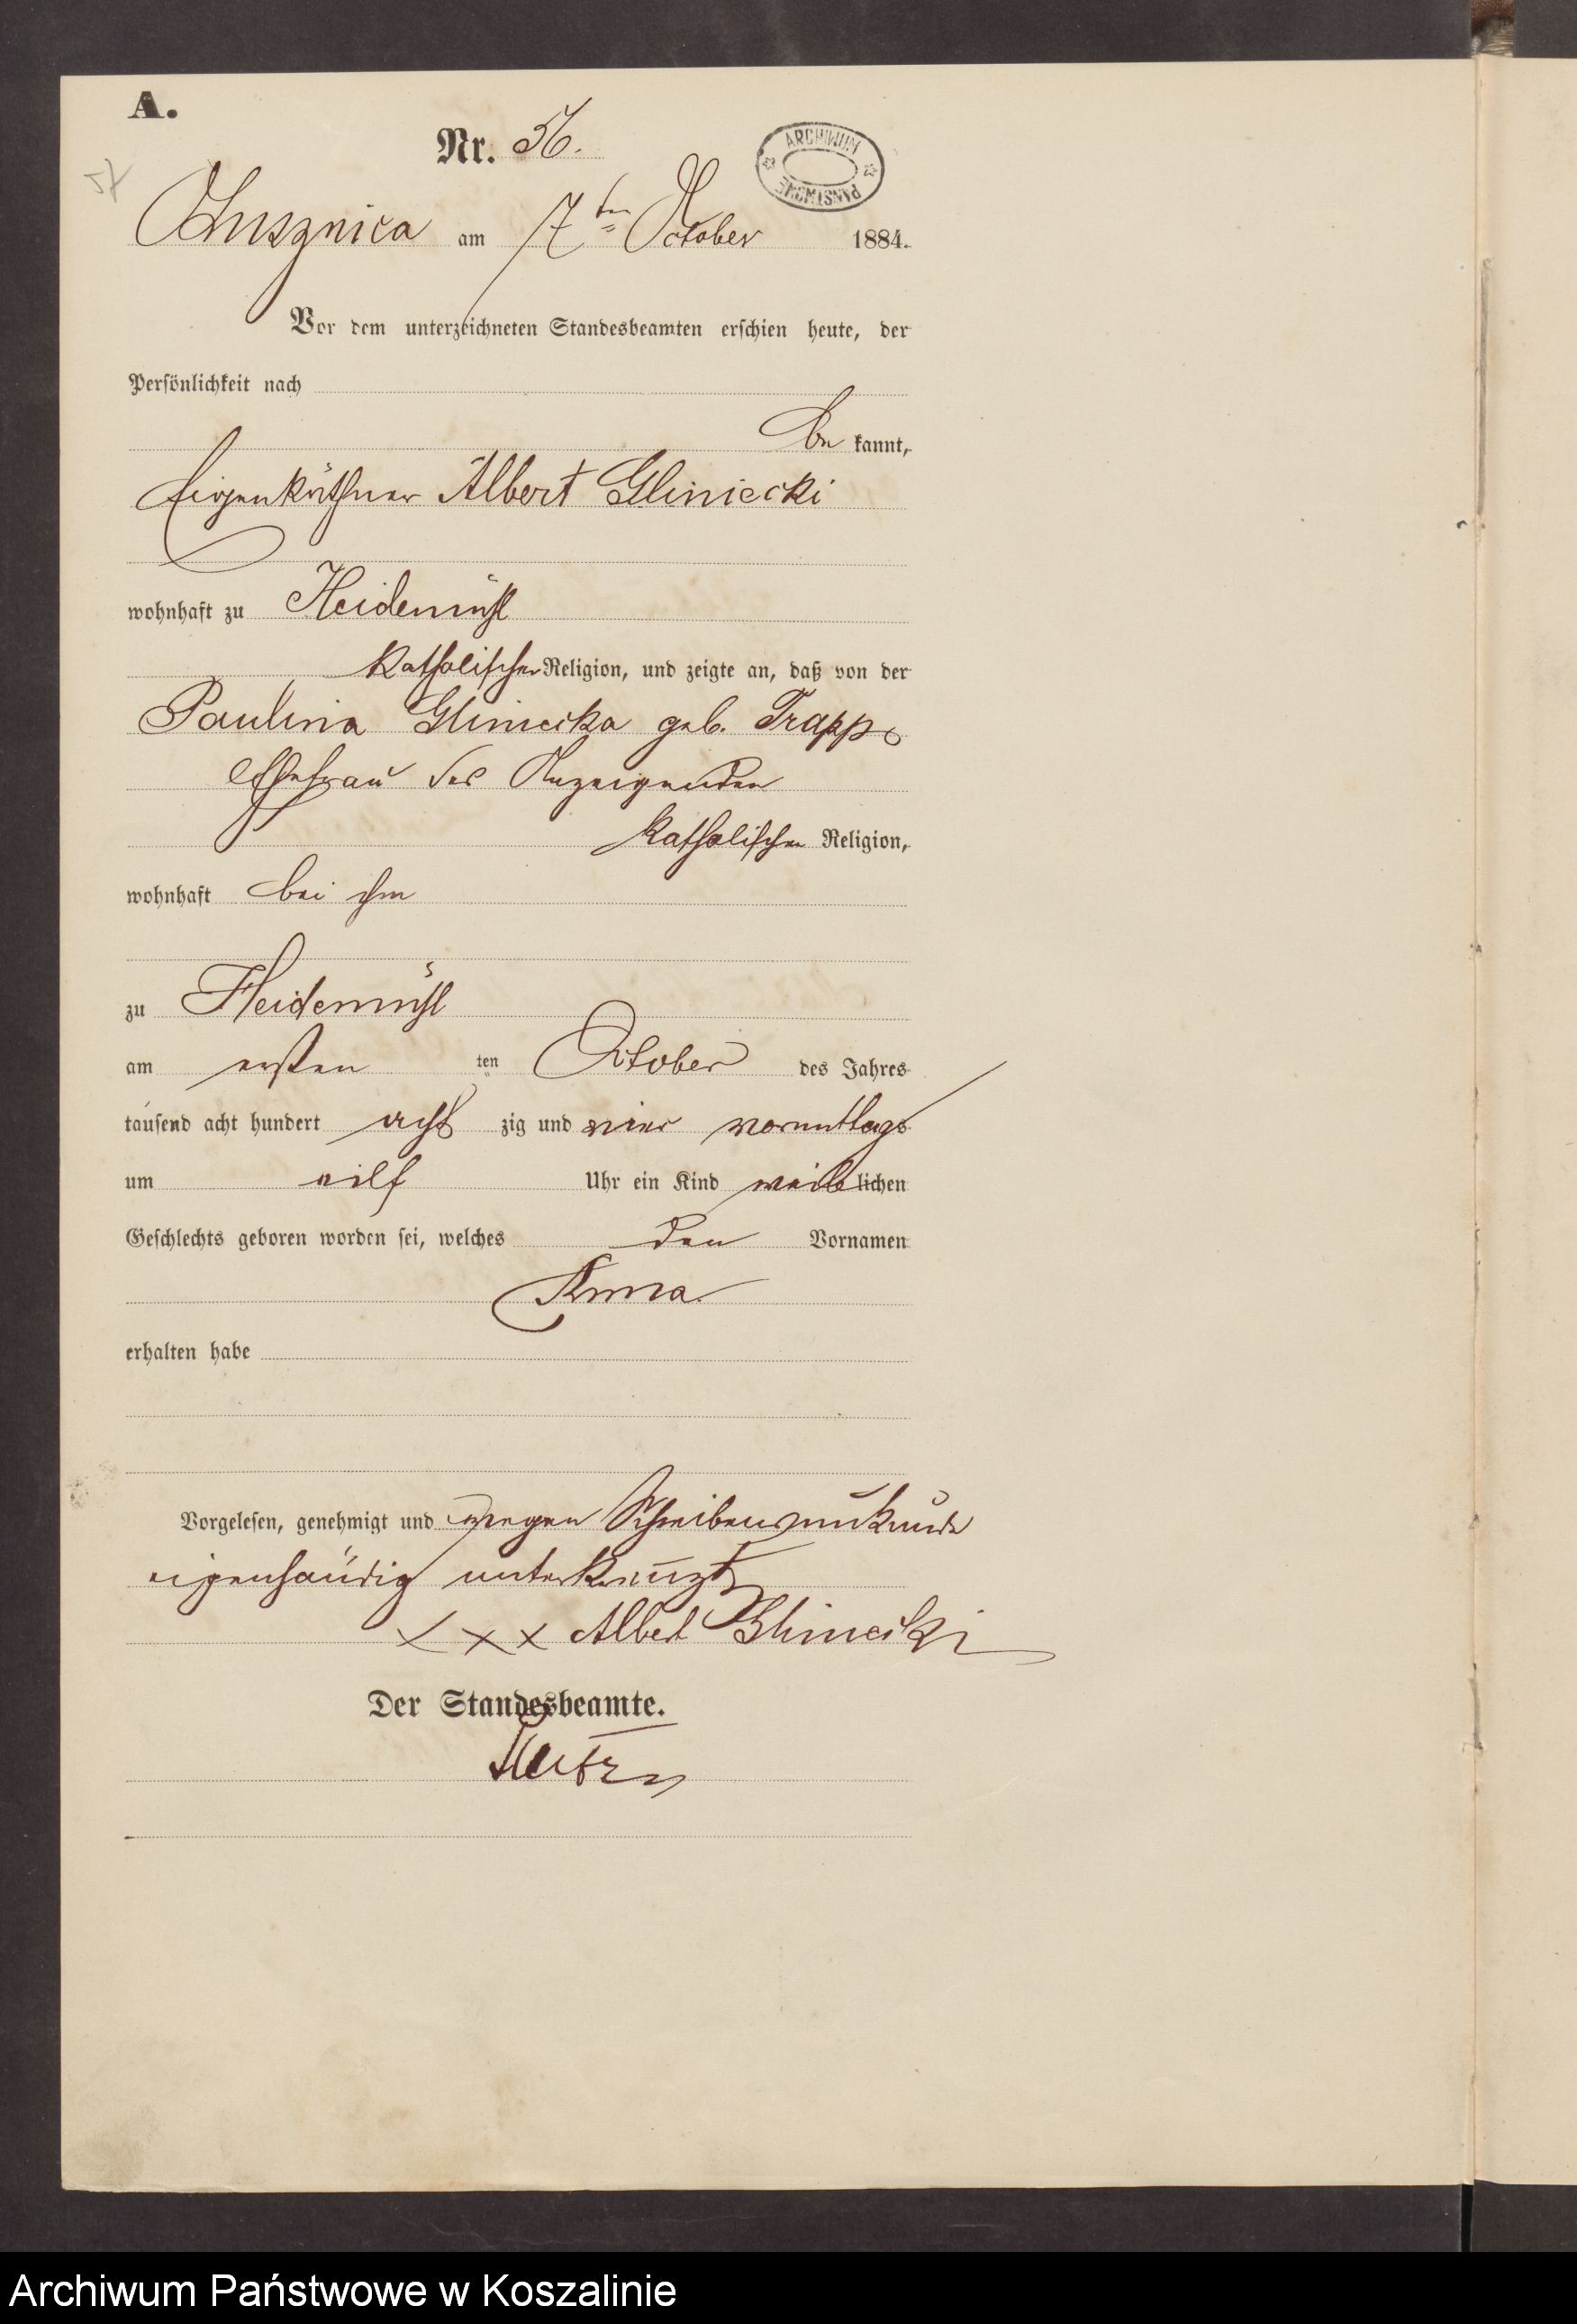 A.
Nr. 56.
ARCHIWUM PAŃSTWOWE
57
Oslusznica am 7ten October 1884.
Vor dem unterzeichneten Standesbeamten erschien heute, der
Persönlichkeit nach
be kannt,
Eigenkäthner Albert Gliniecki
wohnhaft zu Heidemühl
katholischer Religion, und zeigte an, daß von der
Paulina Gliniecka geb. Trapp,
Ehefrau des Anzeigenden
katholischer Religion,
wohnhaft bei ihm
zu Heidemühl
am ersten ten October des Jahres
tausend acht hundert acht zig und vier vormittags
um eilf Uhr ein Kind weib lichen
Geschlechts geboren worden sei, welches den Vornamen
Anna
erhalten habe
Vorgelesen, genehmigt und wegen Schreibensunkunde
eigenhändig unterkreuzt
XXX Albert Gliniecki
Der Standesbeamte.
Archiwum Państwowe w Koszalinie